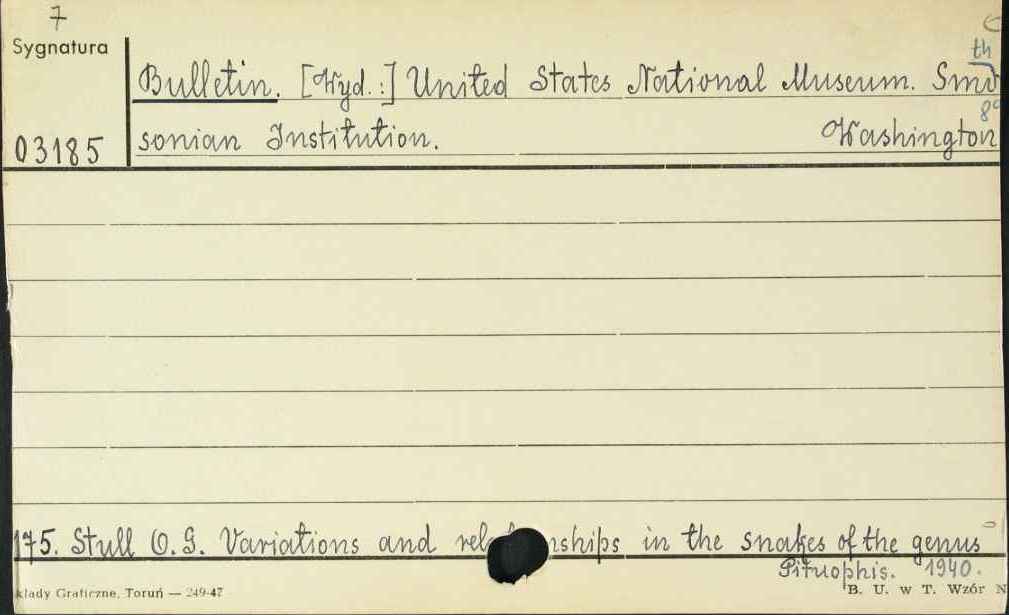 7
Sygnatura
th
Bulletin. [Wyd.:] United States National Museum. Smi
8°
03185 sonian Institution. Washington
175. Stull O.G. Variations and rel nships in the snakes of the genus
Pituophis. 1940.
kłady Graficzne, Toruń — 249-47 B. U. w T. Wzór N